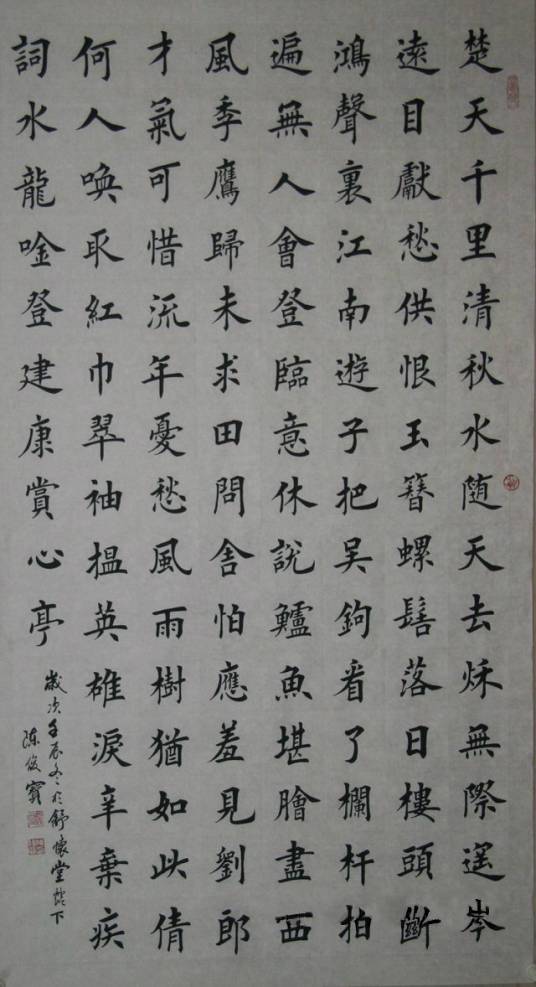 楚天千里清秋水随天去秌無際遥岑
遠目獻愁供恨玉簪螺髻落日樓頭斷
鴻聲裏江南遊子把吴鉤看了欄杆拍
遍無人會登臨意休説鱸魚堪膾盡西
風季鷹歸未求田問舍怕應羞見劉郎
才氣可惜流年憂愁風雨樹猶如此倩
何人唤取紅巾翠袖揾英雄淚辛棄疾
詞水龍唫登建康賞心亭
歲次壬辰冬於舒懷堂燈下
陈俊寶